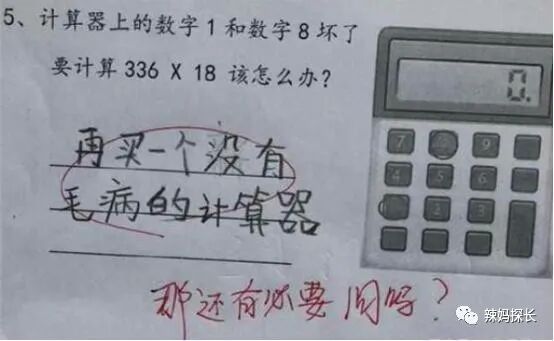 5、计算器上的数字1和数字8坏了
要计算336 X 18 该怎么办?
再买一个没有
毛病的计算器
那还有必要问吗?
0.
7 9
4 5 6
2 3
辣妈探长